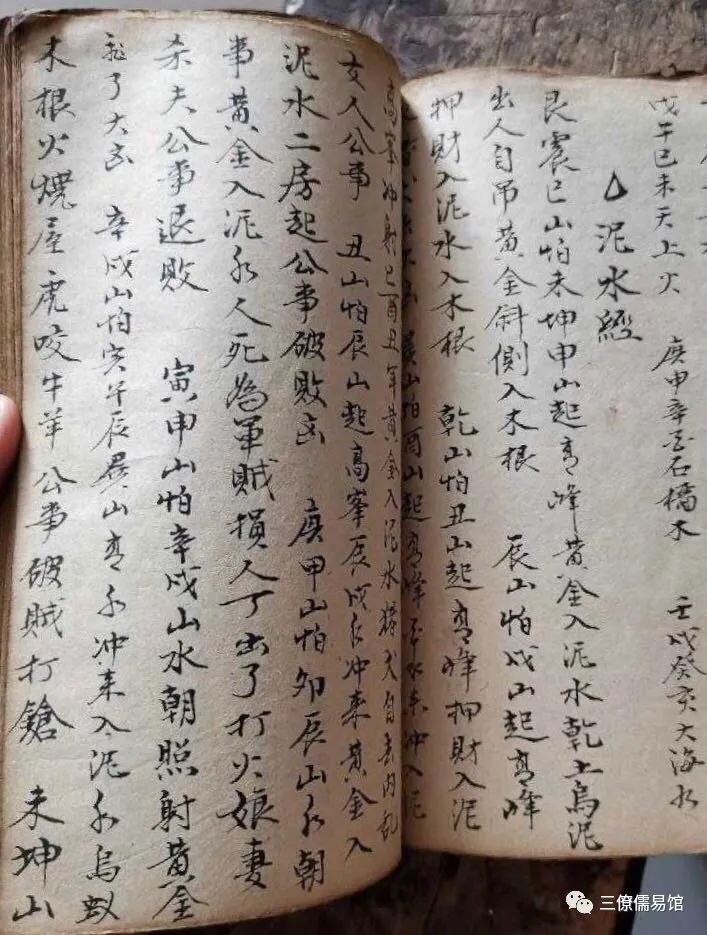 戊午己未天上火　庚申辛酉石榴木　壬戌癸亥大海水
泥水經
艮震巳山怕未坤申山起高峰黄金入泥水乾土烏泥
出人自吊黄金斜側入木根　辰山怕戌山起高峰
押財入泥水入木根　乾山怕丑山起高峰押財入泥
山怕酉山起高峰 水来冲入泥
高峯冲射巳酉丑年黄金入泥水 内乱
女人公事　丑山怕辰山起高峯辰戌水冲来黄金入
泥水二房起公事破敗凶　庚甲山怕卯辰山水朝
事黄金入泥水人死為軍賊損人丁出了打火娘妻
杀夫公事退敗　寅申山怕辛戌山水朝照射黄金
了大凶　辛戌山怕亥 辰巽山高水冲来入泥水烏蚁
木根火燒屋虎咬牛羊公事破賊打鎗　未坤山
三僚儒易馆